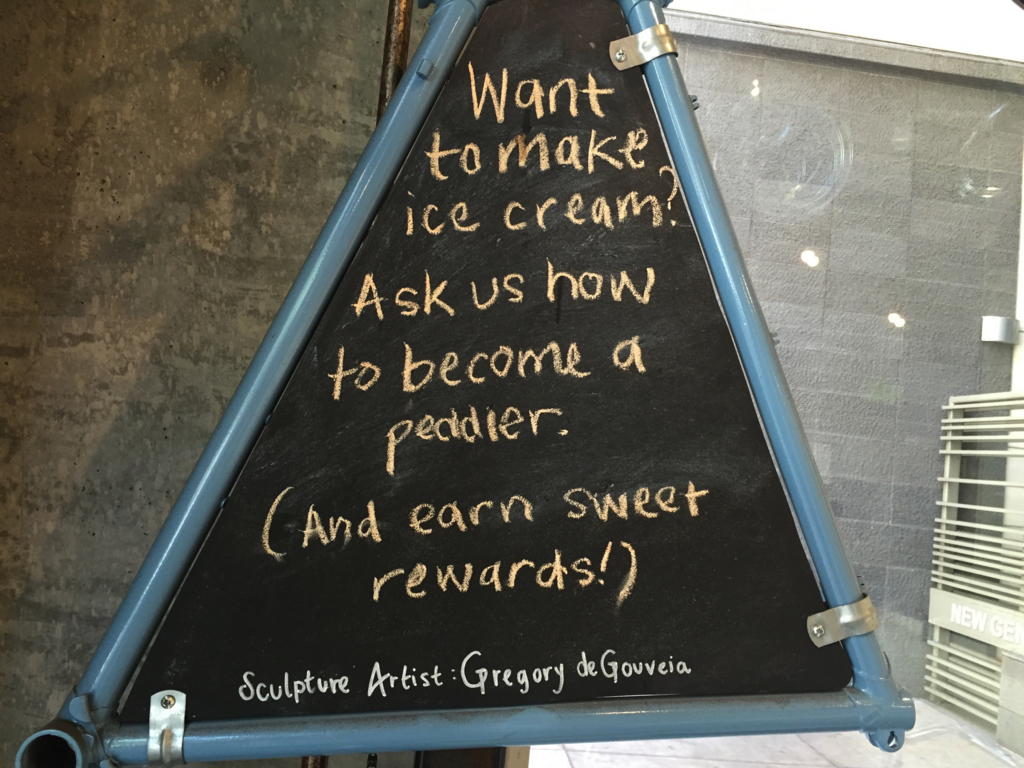 Want
to make
ice cream?
Ask us how
to become a
peddler.
(And earn sweet
rewards!)
Sculpture Artist: Gregory deGouveia
NEW GEN